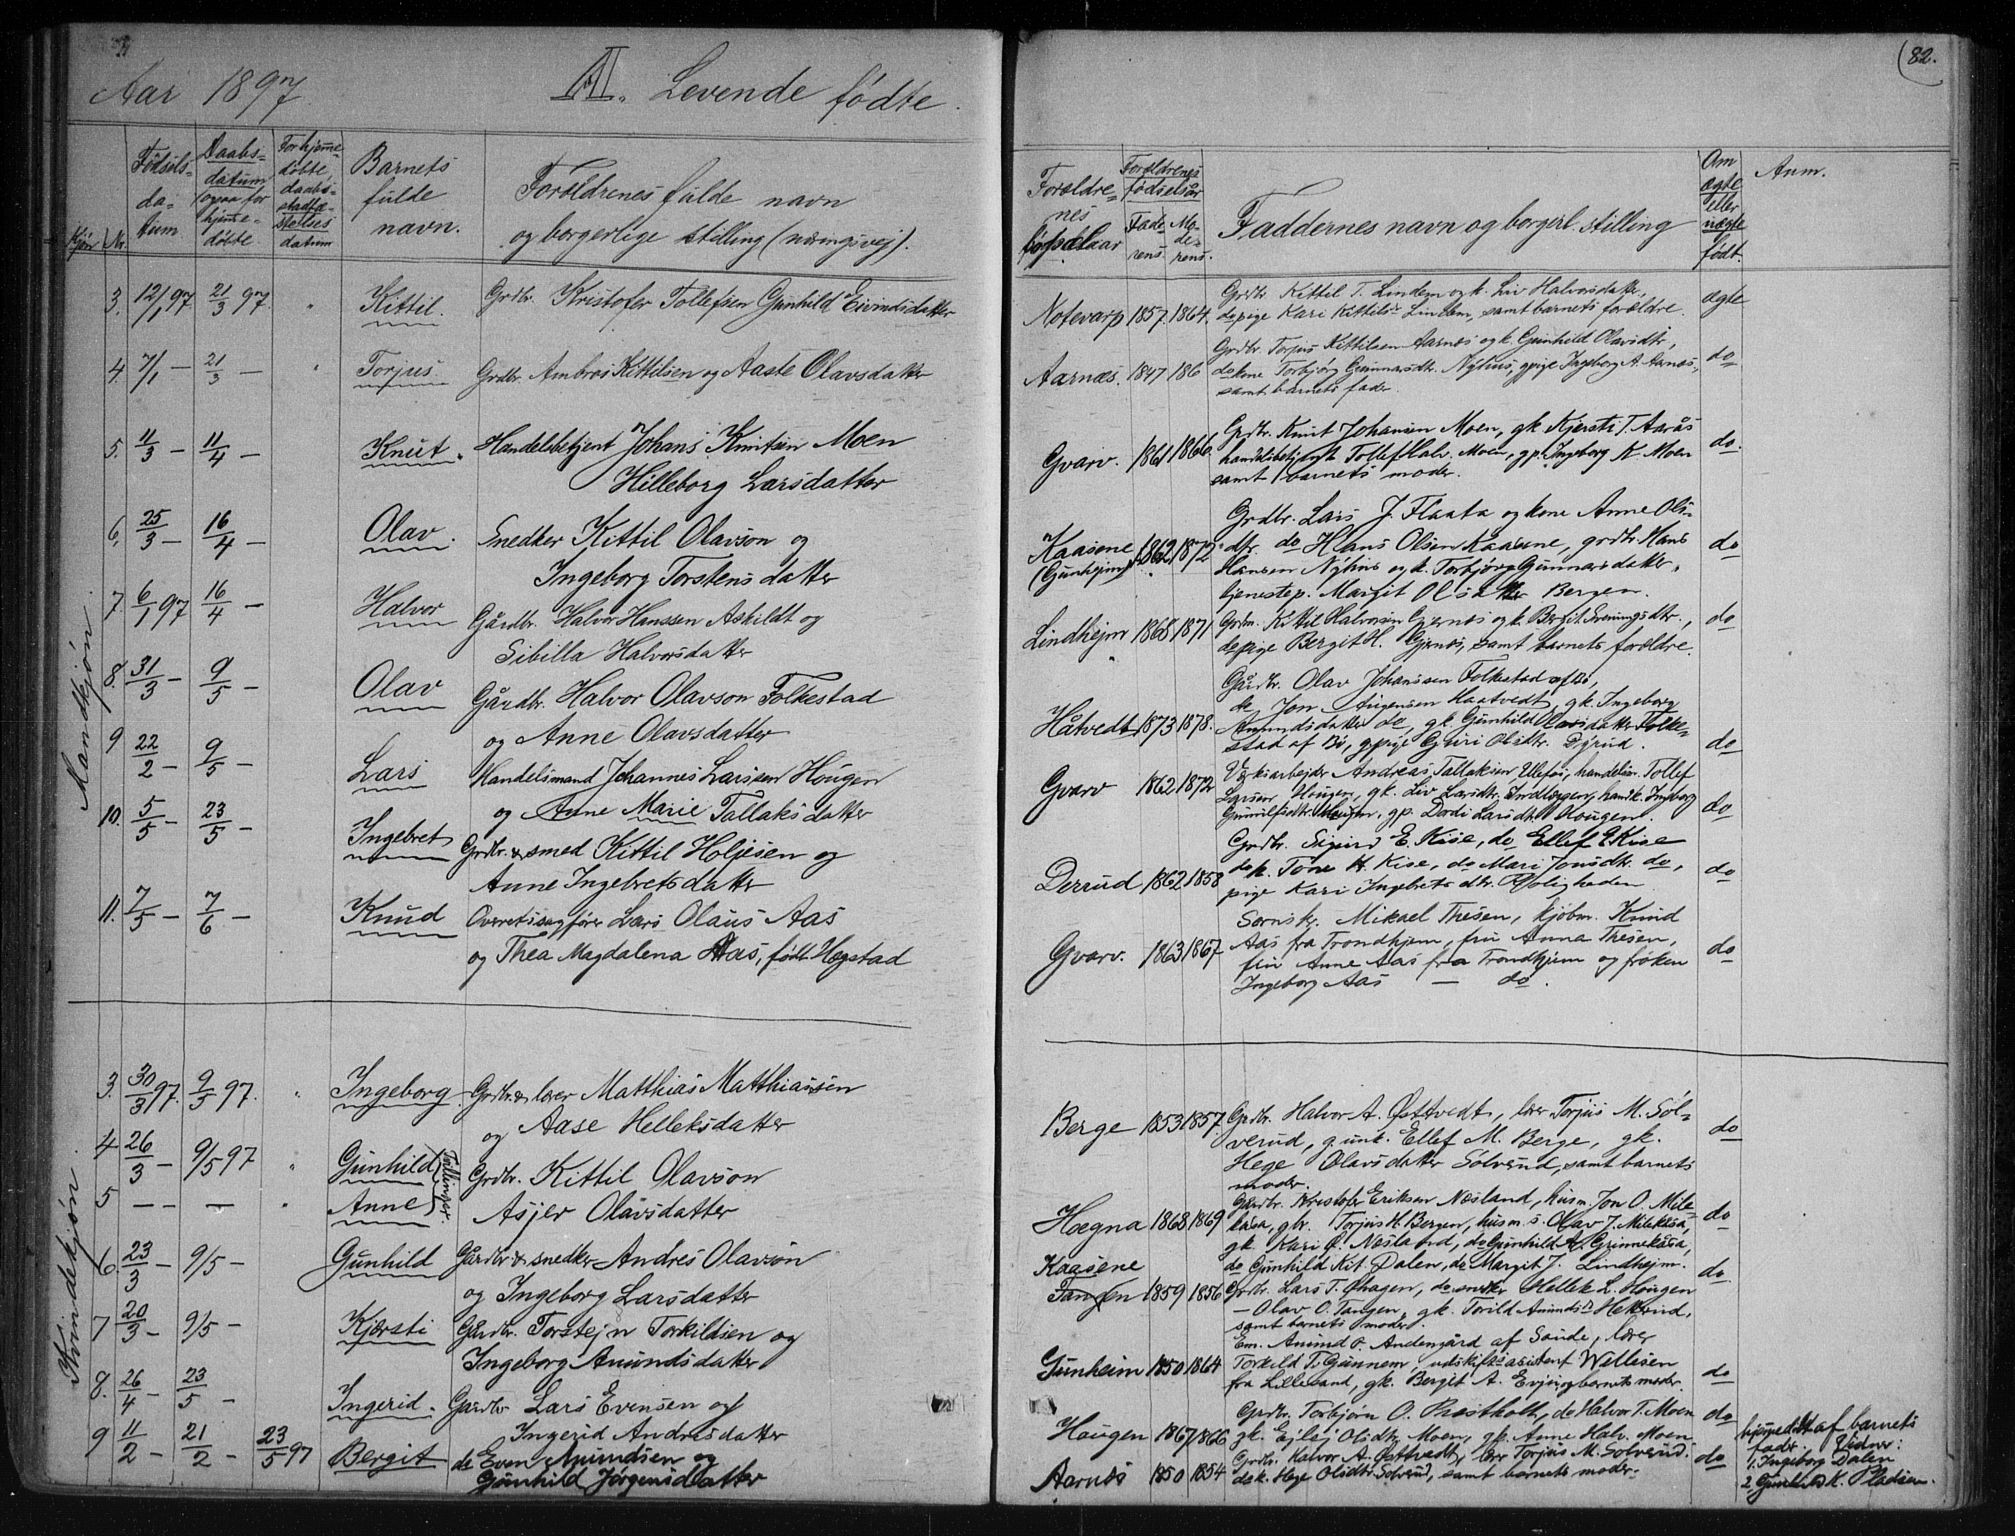 Aar 1897.
A. Levende fødte.
Kjøn
Nr.
Fødsels-
da-
tum.
Daabs-
datum
(ogsaa for
hjeme-
døbte
For hjeme-
døbte,
daabs-
stadfæ-
stelses
datum
Barnets
fulde
navn.
Forældrenes fulde navn
og borgerlige stilling (næringsvej).
Mandkjøn.
3. 12/1 97 21/3 97. " Kittil. Grdbr. Kristofer Tollefsen Gunhild Eivindsdatter
4. 7/1 — 21/3 — " Torjus. Grdbr. Ambros Kittilsen og Aaste Olavsdatter
5. 11/3 — 11/4 — Knut. Handelsbetjent Johans Knutsen Moen
Hilleborg Larsdatter
6. 25/3 — 16/4 — Olav. Snedker Kittil Olavson og
Ingeborg Torstensdatter
7. 6/1 97 16/4 — Halvor Gårdbr. Halvor Hanssen Askildt og
Sibilla Halvorsdatter
8. 31/3 — 9/5 — Olav Gårdbr. Halvor Olavson Folkestad
og Anne Olavsdatter
9 22/2 — 9/5 — Lars Handelsmand Johannes Larssen Hougen
og Anne Marie Tallaksdatter
10. 5/5 — 23/5 — Ingebret Grdbr. & smed Kittil Holjesen og
Anne Ingebretsdatter
11. 7/5 — 7/6 — Knud Overretssagfører Lars Olaus Aas
og Thea Magdalena Aas, født Hegstad
Kvindekjøn.
3. 30/3 97. 9/5 97. " Ingeborg Grdbr. & lærer Matthias Matthiassen
og Aase Helleksdatter
4 26/3 — 9/5 97 " Gunhild Tvillinger. Grdbr. Kittil Olavson
5 — — — " Anne Asjer Olavsdatter
6. 23/3 — 9/5 — Gunhild Gårdbr. & snedker Andres Olavson
og Ingeborg Larsdatter
7 20/3 — 9/5 — Kjærsti Gårdbr. Torstejn Torkildsen og
Ingeborg Anundsdatter
8. 26/4 — 23/5 — Ingerid. Gardbr Lars Evensen og
Ingerid Andresdatter
9 11/2 — 21/2 — 23/5 97 Bergit do Even Amundsen og
Gunhild Jørgensdatter
(82.
Forældre-
nes
bopæl
Forældrenes
fødselsår
Fade-
rens.
Mo-
de-
rens.
Faddernes navn og borgerl. stilling
Om
ægte
eller
uægte
født.
Anm.
Notevarp 1857. 1864. Grdbr Kittil T. Lindem og k. Liv Halvorsdatter, ægte
do pige Kari Kittilsdr. Lindem, samt barnets forældre.
Aarnæs. 1847 186 Grdbr. Torjus Kittilsen Aarnæs og k. Gunhild Olavsdtr, do
do kone Torbjørg Gunnarsdtr. Nyhus, gpige Ingeborg A. Aarnæs,
samt barnets fader.
Gvarv. 1861 1866. Grdbr. Knut Johansen Moen, gk. Kjersti T. Aarås do.
handelsbetjent Tollef Halv. Moen, gp. Ingeborg K. Moen
samt barnets moder.
Grdbr. Lars J. Flaata og kone Anne Ols-
Kaasene 1862 1872 dtr. do Hans Olsen Kaasene, grdbr. Hans do
(Gunhejm) Hansen Nyhus og k. Torbjørg Gunnarsdatter,
tjenestep. Margit Olsdatter Bergen.
Lindhejm 1868 1871 Grdm. Kittil Halvorsen Gjernæs og k. Bergit Sveningsdtr., do
do pige Bergit H. Gjernæs, samt barnets forældre.
Gårdbr. Olav Johanssen Folkestad af Bø,
do Jon Augensen Haatvedt, gk. Ingeborg
Håtvedt 1873 1878. Amundsdatter do, gk. Gunhild Olavsdatter Folke-
stad af Bø, gpige Guri Olsdtr. Djrud. do
Gvarv 1862 1872 Værksarbejder Andreas Tallaksen Ulefos, handelsm. Tollef
Larssen Hougen, gk. Liv Larsdtr. handk. Ingeborg do
Hougen, gp. Dordi Larsdtr. Hougen.
Grdbr. Sigurd E. Kise, do Ellef E Kise
Derrud 1862 1858 do k. Tone H. Kise, do Mari Jonsdtr. do, do
pige Kari Ingebretsdtr. Roligheden
Sorenskr. Mikael Thesen, kjøbm. Knud
Gvarv. 1863 1867 Aas fra Trondhjem, fru Anna Thesen, do
fru Anne Aas fra Trondhjem og frøken
Ingeborg Aas — do.
Berge 1853 1857. Grdbr. Halvor A. Østtvedt, lærer Torjus M. Søl- do
verud, g. unk. Ellef M. Berge, gk.
Hege Olavsdatter Sølverud, samt barnets
moder.
Gårdbr. Kristofer Eriksen Næsland, husm. Jon O. Mile-
Hægna 1868 1869 kåsa, gbr. Torjus H. Bergen, husm. s. Olav J. Milekåsa, do
gk Kari Ø. Næsland, do Gunhild A. Grinnekåsa,
Kaasene do Gunhild Kit. Dalen, do Margit J. Lindhejm.
Tangen 1859 1856 Grdbr. Lars T. Øhagen, do snedker Hellek L. Hougen do
— Olav O. Tangen, gk. Torild Anundsdr. Hekerud,
samt barnets moder.
Em. Anund O. Andengård af Saude, lærer
Gunheim 1850 1864 Torkild T. Gunnem, udskiftn. assistent Wettesen do
fra Lillesand, gk. Bergit A. Evju og barnets moder.
Haugen 1867 1866 Grdbr. Torbjørn O. Præstholt, do Halvor T. Moen do
gk. Ejlej Olsdtr Moen, gk. Anne Halv. Moen
Aarnæs 1850 1854 Grdbr. Halvor A. Østtvedt, lærer Torjus M. Sølverud, do
do k. Hege Olsdtr Sølverud, samt barnets moder.
hjemedøbt af barnets
fader. Vidner:
1. Ingeborg Dalen
2 Gunhild K. Pladsen.